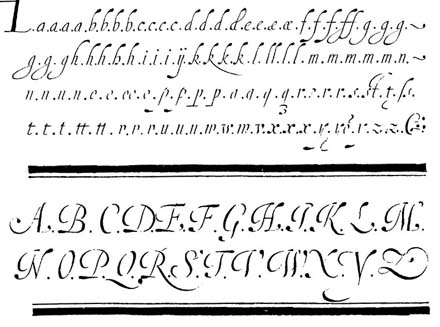 a.a.a.a.b.b.b.b.c.c.c.c.d.d.d.d.e.e.e.æ.f.f.f.ff.g.g.g.
g.g.g.h.h.h.b.h.i.i.i.ÿ.k.k.k.k.l.ll.l.l.m.m.m.m.m.n.
n.n.u.n.e.e.ee.e.p.p.p.p.a.q.q.q.r.r.r.r.s.st.t.ſs.
t.t.t.tt.tt.v.v.v.u.u.u.w.w.w.v.x.x.x.y.r.z.z.
A.B.C.D.E.F.G.H.I.K.L.M.
N.O.P.Q.R.S.T.V.W.X.Y.Z